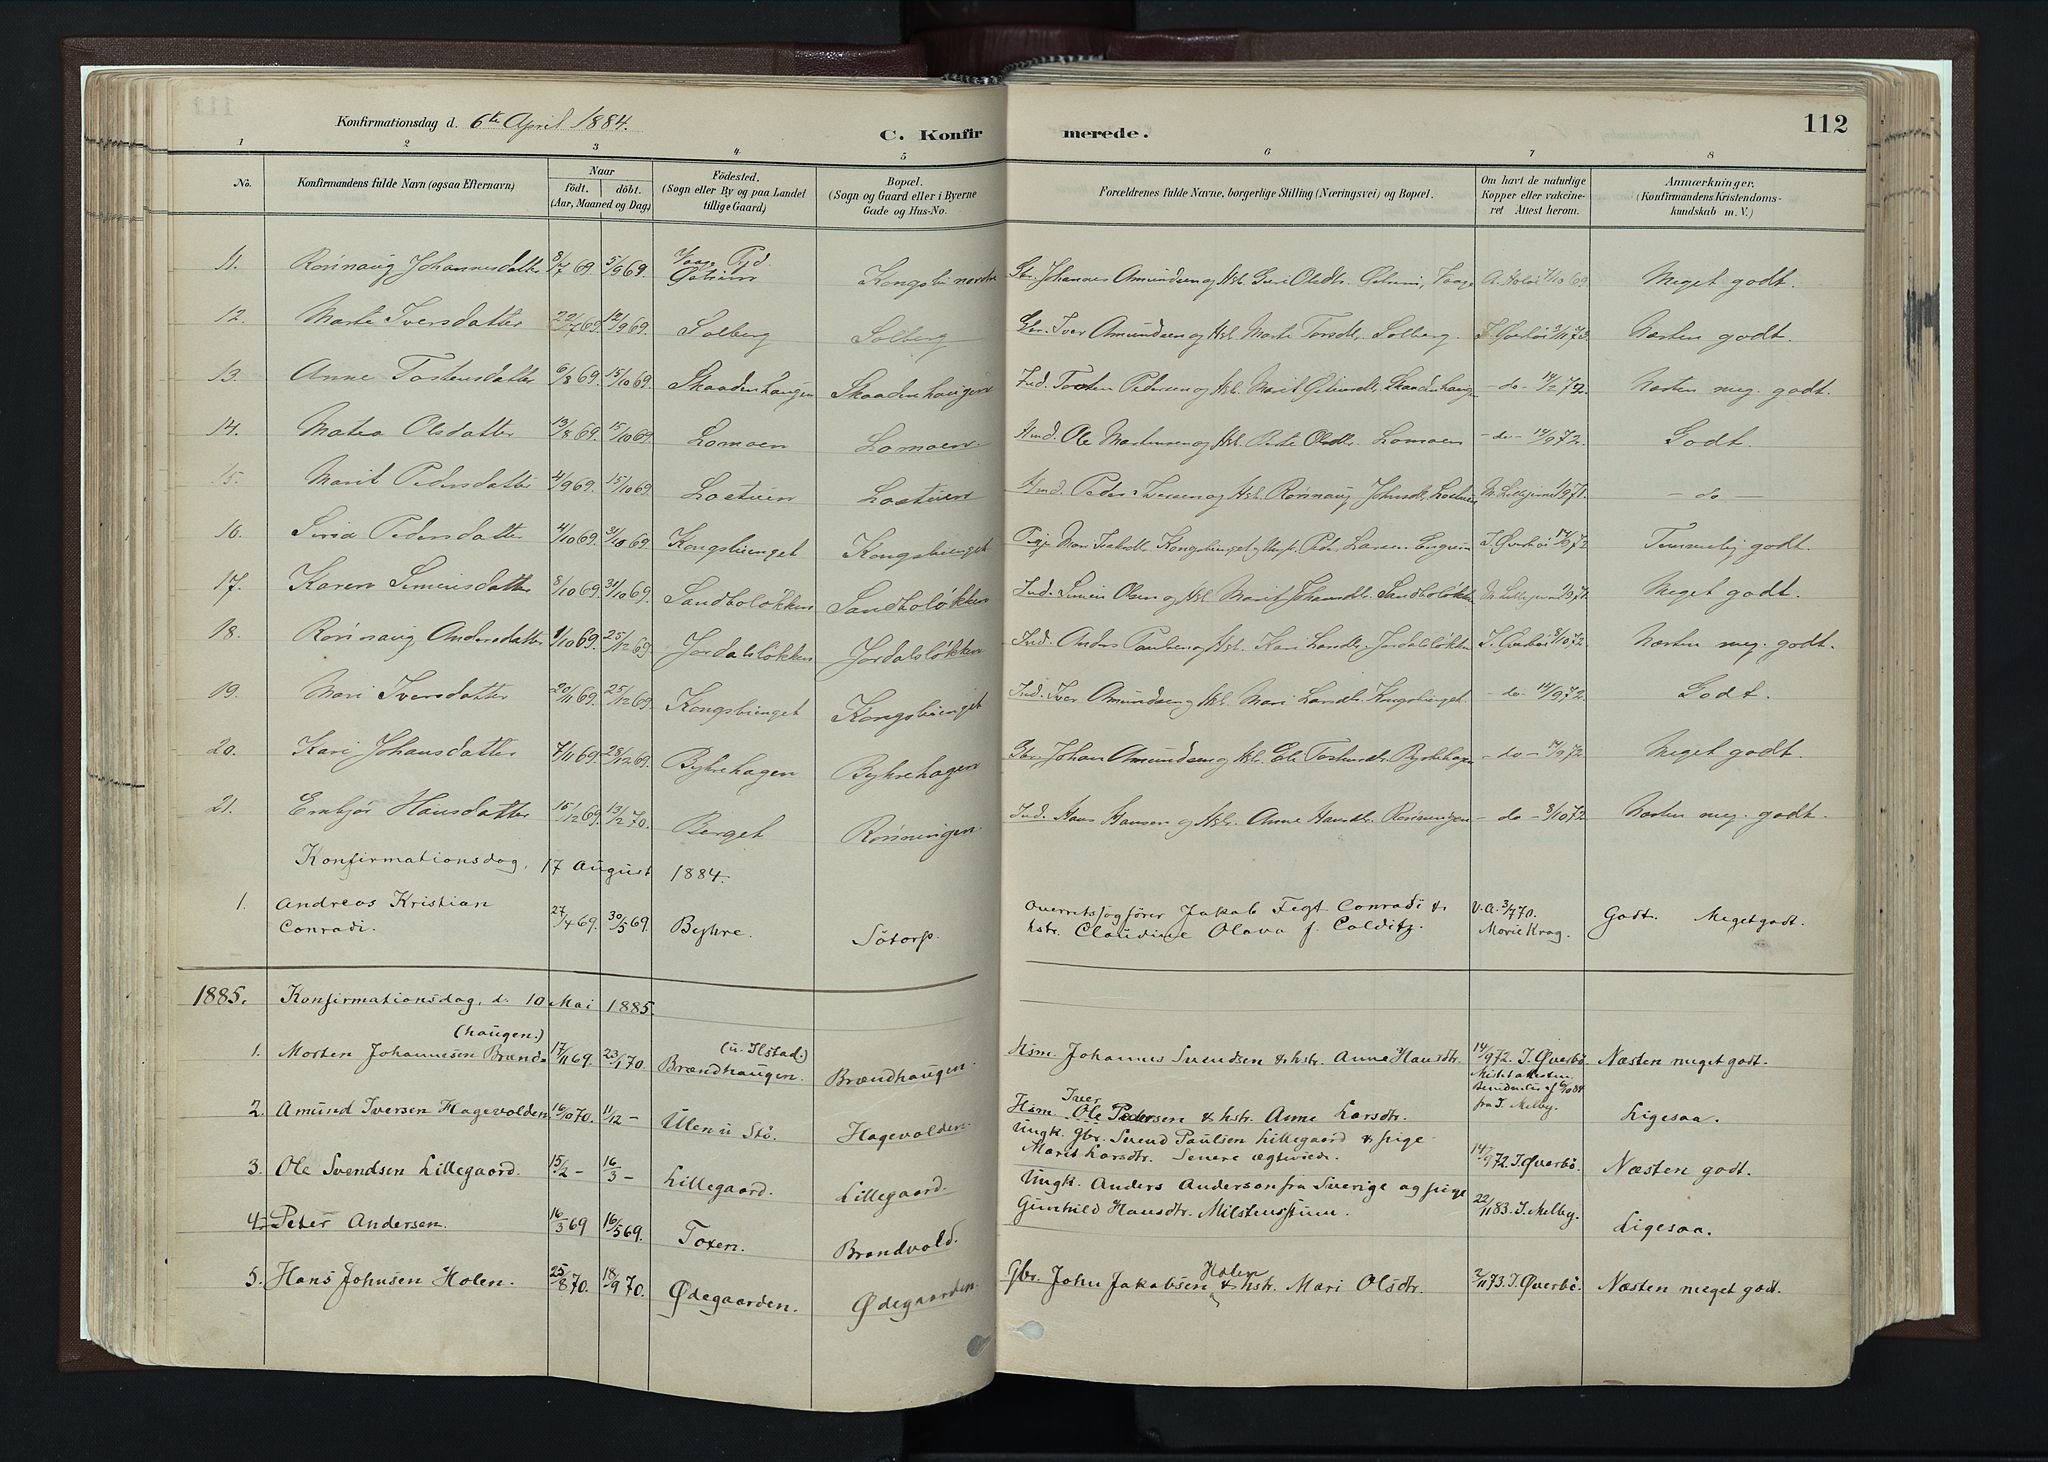 Konfirmationsdag d. 6te April 1884.
C. Konfirmerede.
112
1 2 3 4 5 6 7 8
No. Konfirmandens fulde Navn (ogsaa Efternavn) Naar født. døbt. (Aar, Maaned og Dag) Fødested. (Sogn eller By og paa Landet tillige Gaard) Bopæl. (Sogn og Gaard eller i Byerne Gade og Hus-No. Forældrenes fulde Navne, borgerlige Stilling (Næringsvei) og Bopæl. Om havt de naturlige Kopper eller vakcineret Attest herom. Anmærkninger. (Konfirmandens Kristendomskundskab m. V.)
11. Rønnaug Johannesdatter 8/7 69 5/9 69. Kongsli nordre Gbr. Johannes Amundsen og Hst. Meget godt.
12. Marte Iversdatter 22/7 69. 12/9 69. Solberg Solberg Gbr. Iver Amundsen og Hst. Marte Torsdtr. Solberg. I. Øverbø 3/11 73. Næsten godt.
13. Anne Tostensdatter 6/8 69 15/10 69. Skaadenhaugen Skaadenhaugen Ind. Tosten Pedersen og Hst. Marit Skaadenhaugen - do - 14/2 72. Næsten meg. godt.
14. Matea Olsdatter 13/8 69. 15/10 69 Lomoen Lomoen Ind. Ole Mortensen og Hst. Olsdtr. Lomoen - do - 14/9 72. Godt.
15. Marit Pedersdatter 4/9 69. 15/10 69. Loetuen Loetuen Peder og Hst. Rønnaug Johnsdtr. Loetuen 1/9 71. - do -
16. Pedersdatter 4/10 69. 31/10 69. Kongslienget Kongslienget Pige Mari Kongslienget Peder Larsen I. Øverbø Temmelig godt.
17. Karen Simensdatter 8/10 69 31/10 69. Sandboløkken Sandboløkken Ind. Simen Olsen og Hst. Marit Johansdtr. Sandboløkken 1/9 71. Meget godt.
18. Rønnaug Andersdatter 1/10 69. 25/12 69 Jordalsløkken Jordalsløkken Ind. Anders Paulsen og Hst. Kari Larsdtr. Jordalsløkken I. Øverbø 8/10 72. Næsten meg. godt.
19. Mari Iversdatter 20/11 69. 25/12 69. Kongslienget Kongslienget Ind. Iver Amundsen og Hst. Mari Larsdtr. Kongslienget. - do - 14/9 72. Godt.
20. Kari Johansdatter 7/11 69. 28/12 69. Bykrehagen Bykrehagen Gbr. Johan Amundsen og Hst. Eli Tostensdtr. - do - 14/9 72 Meget godt.
21. Embjør Hansdatter 15/12 69. 13/2 70. Berget Rønningen. Ind. Hans Hansen og Hst. Anne Hansdtr. Rønningen - do - 8/10 72 Næsten meg. godt.
Konfirmationsdag. 17 August 1884.
1. Andreas Kristian 27/4 69. 30/5 69. Bykre. Sötorp. Overretssagfører Jakob Fegt Conradi & V. A. 3/7 70. Godt. Meget godt.
Conradi. hstr. Claudine Olava f. Colditz. Marie Krag.
1885. Konfirmationsdag, d. 10 Mai 1885.
(haugen.) (u. Ilstad.)
1. Morten Johannesen Brænd- 17/11 69. 23/1 70. Brændhaugen. Brændhaugen. Hsm. Johannes Svendsen & hstr. Anne Hansdtr. 14/9 72. I. Øverbø. Næsten meget godt.
Iver
2. Amund Iversen Hagevolden 16/10 70. 11/12 - Ulen u Stö. Hagevolden. Hsm. Ole Pedersen & hstr. Anne Larsdtr. fra I. Melby. Ligesaa.
Ungk. Gbr. Svend Paulsen Lillegaard & pige
3. Ole Svendsen Lillegaard. 15/2 - 16/3 - Lillegaard. Lillegaard. Marit Larsdtr. Senere ægteviede. 14/9 72. I. Øverbø. Næsten godt.
Ungk. Anders Anderson fra Sverige og pige
4. Peter Andersen. 16/3 69 16/5 69. Toxen. Brandvold. Gunhild Hansdtr. 22/11 83. I. Melby. Ligesaa.
Holen
5. Hans Johnsen Holen. 25/8 70. 18/9 70. Ødegaarden. Ødegaarden. Gbr. John Jakobsen & hstr. Mari Olsdtr. 2/11 73. I. Øverbø. Næsten meget godt.